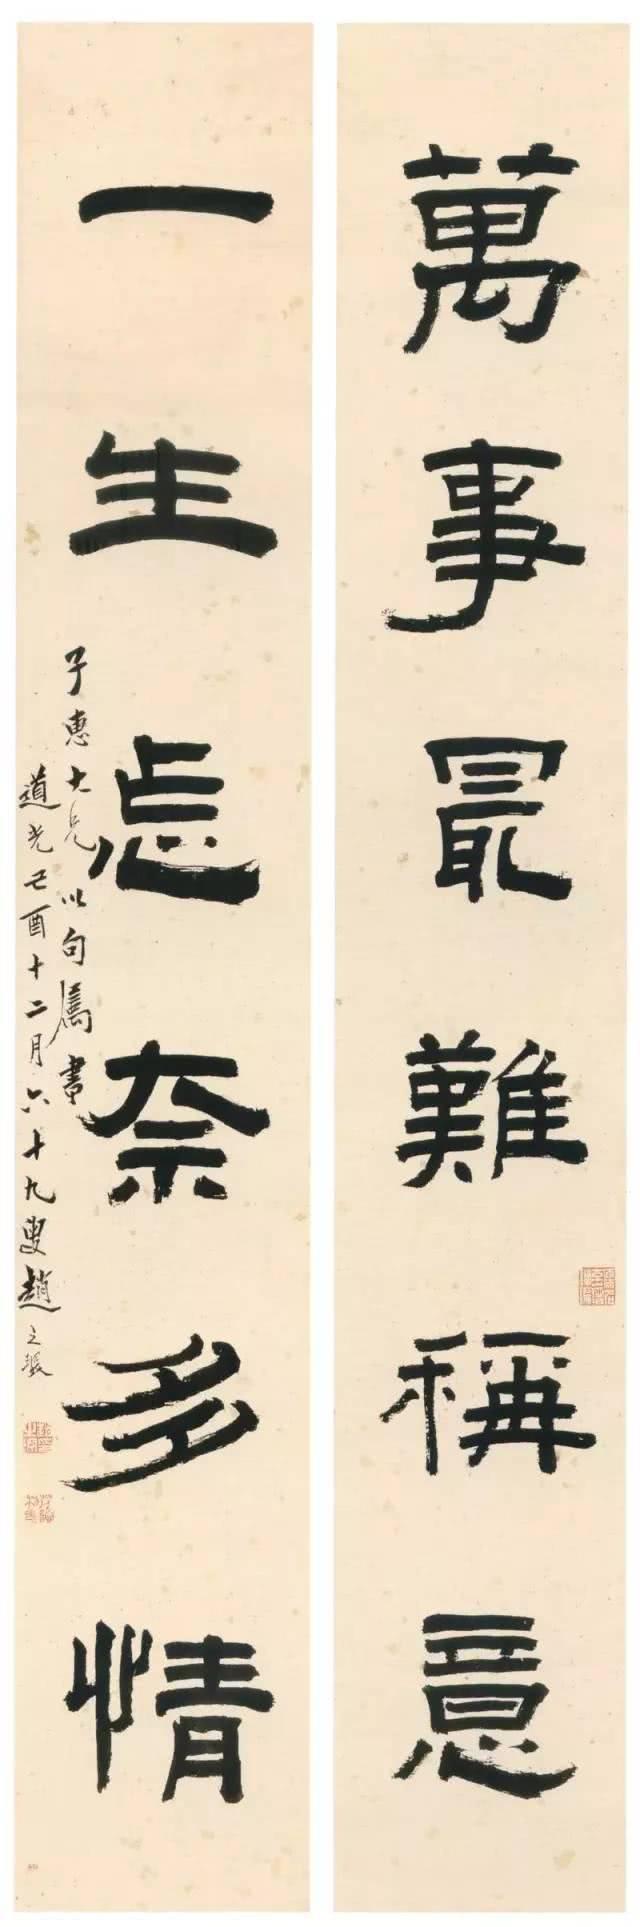 萬事最難稱意
一生怎奈多情
子惠大兄以句属書
道光己酉十二月六十九叟趙之琛